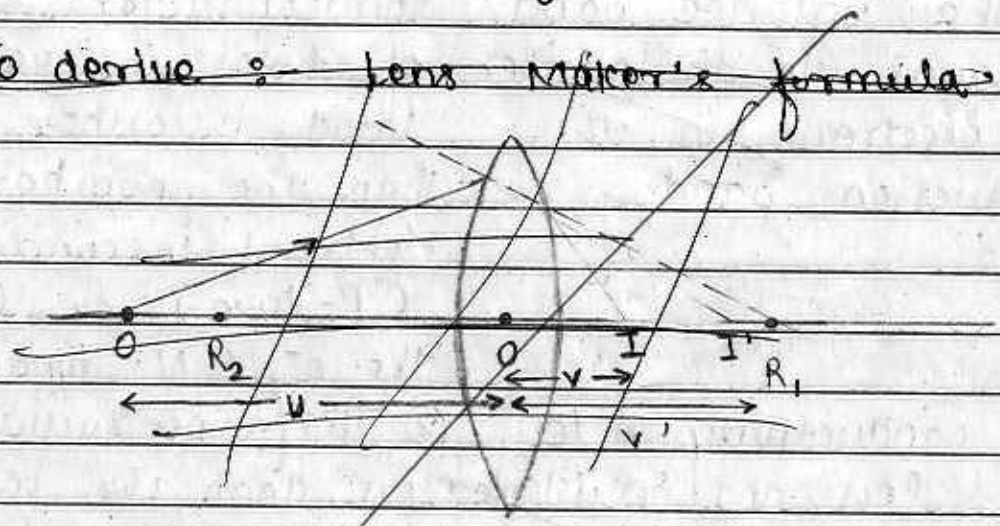 o derive :- Lens Maker's formula
O R₂ O I I' R₁
u v
v'